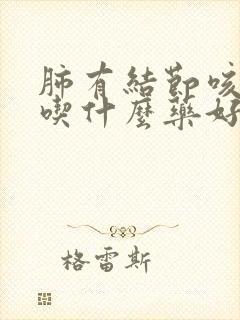 肺有結節咳
喫什麼藥好
格雷斯